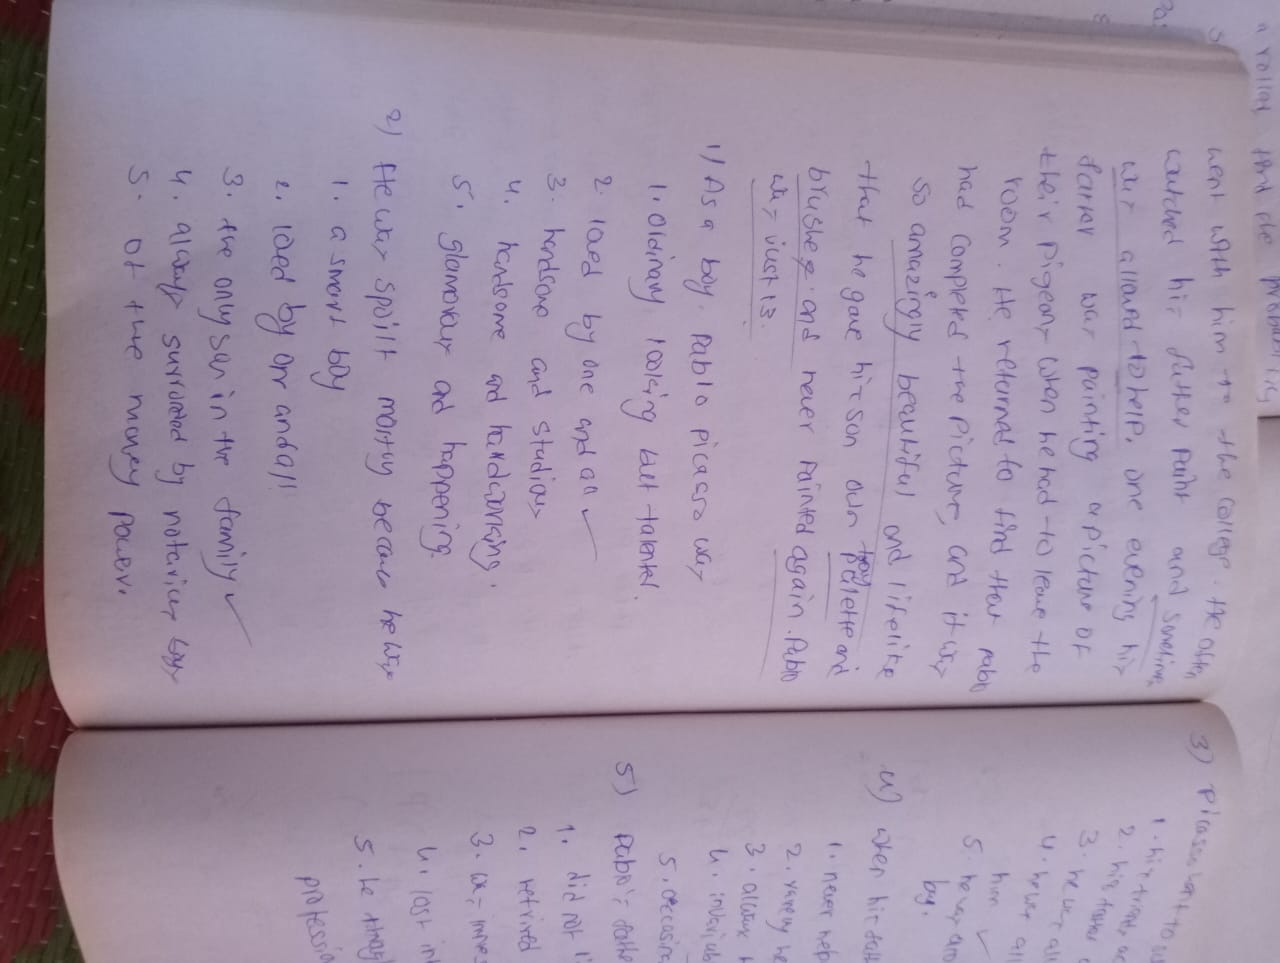 went with him to the college. He often
watched his father paint and sometimes
was allowed to help. One evening his
father was painting a picture of
their pigeons when he had to leave the
room. He returned to find that pablo
had completed the picture, and it was
so amazingly beautiful and lifelike
that he gave his son own palette and
brushes and never painted again. Pablo
was just 13.
1) As a boy, Pablo picasso was
1. oldinary looking but talented.
2. loed by one and all ✓
3. handsome and studious
4. handsome and hardworking.
5. glamorous and happening.
2) He was spoilt mostly because he was
1. a smart boy
2. loed by one and all
3. the only son in the family ✓
4. always surrounded by notorious boys
5. of the money power.
3) Picasso
1. his
2. his
3. he was
4. he was
him ✓
5. he was
boy.
4) when his
1. never help
2. rarely he
3. always h
4. invariab
5. occasiona
5) Pablo's fathe
1. did not li
2. retrived
3. was impres
4. lost int
5. he though
profession